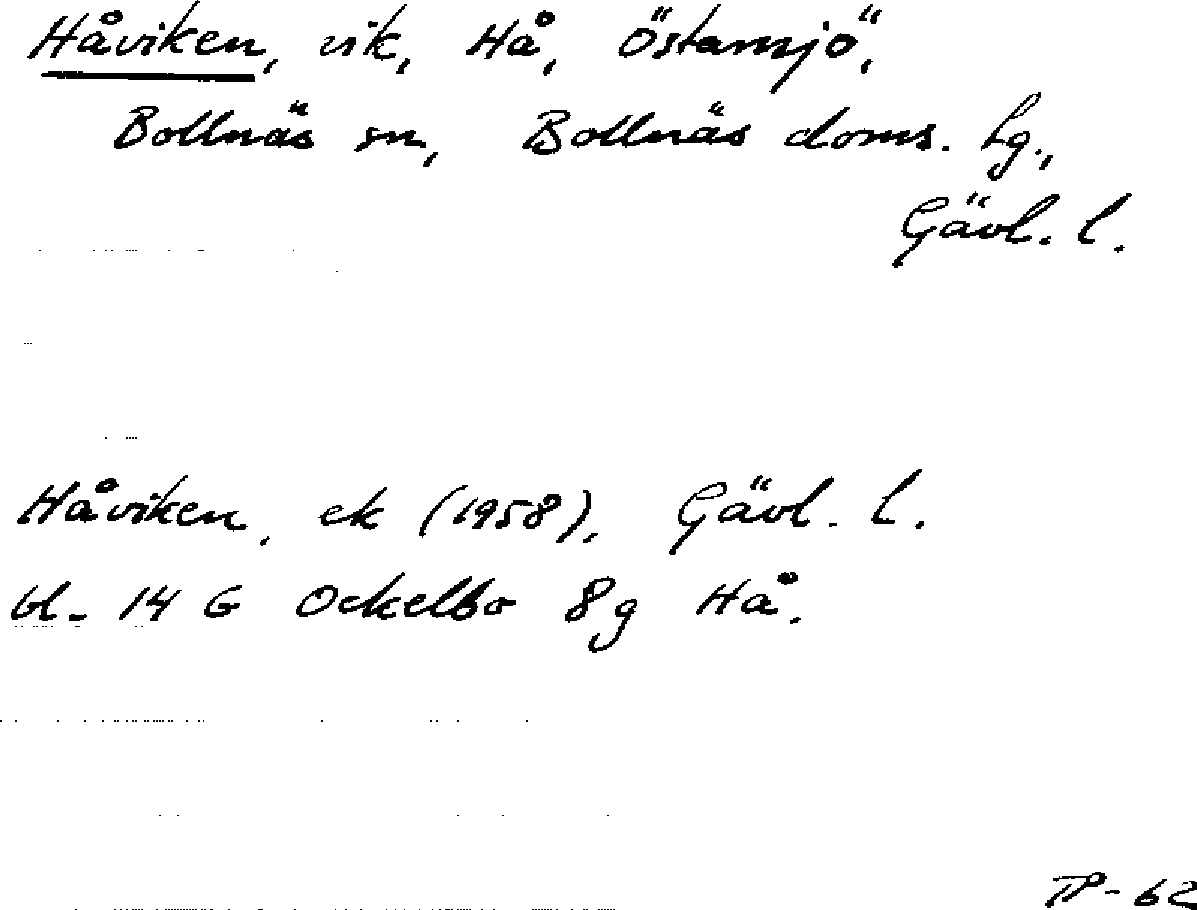 Håviken, vik, Hå, Östansjö,
Bollnäs sn, Bollnäs doms. hg.,
Gävl. l.
Håviken, ek (1958), Gävl. l.
bl. 14 G Ockelbo 8g Hå.
TP-62